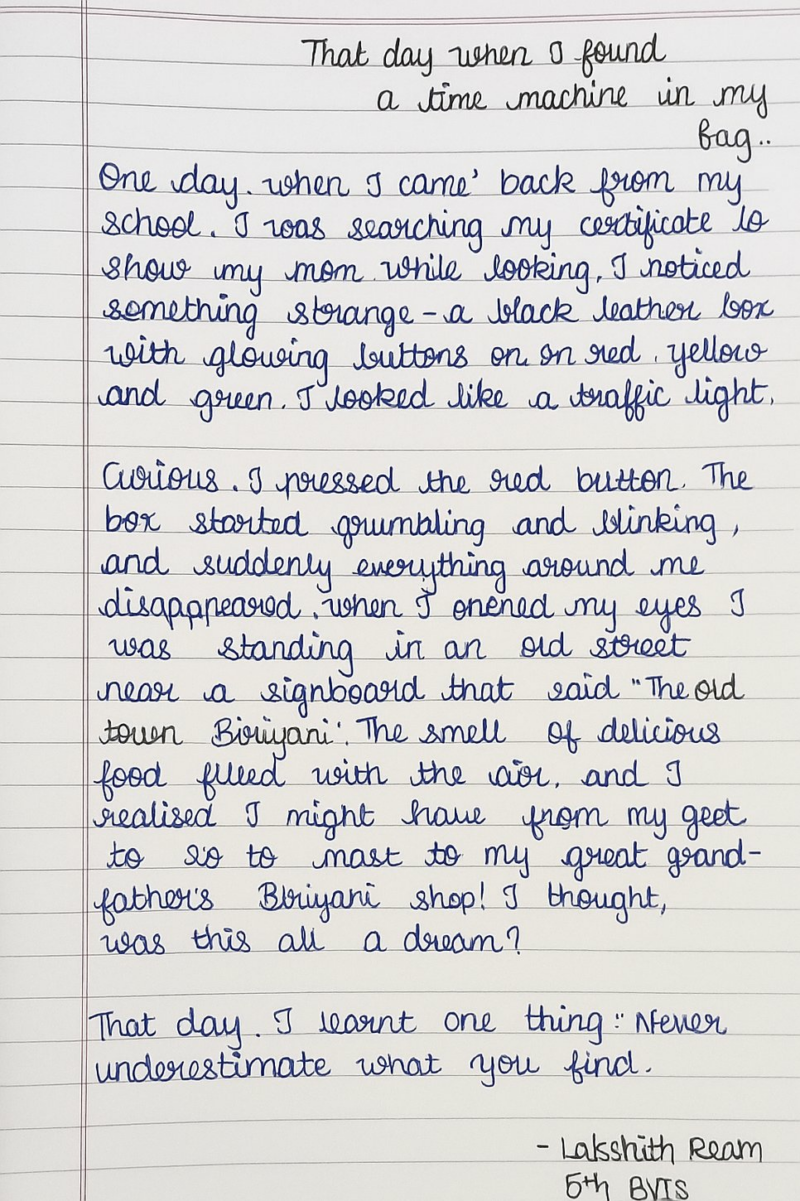 That day when I found
a time machine in my
bag..
One day. when I came' back from my
school. I was searching my certificate to
show my mom while looking, I noticed
something strange - a black leather box
with glowing buttons on on red. yellow
and green. I looked like a traffic light.
Curious. I pressed the red button. The
box started grumbling and blinking,
and suddenly everything around me
disapppeared. when I onened my eyes I
was standing in an old street
near a signboard that said "The old
town Biriyani'. The smell of delicious
food filled with the air, and I
realised I might have from my geet
to so to mast to my great grand-
father's Biriyani shop! I thought,
was this all a dream?
That day. I learnt one thing: "Never
underestimate what you find.
- Lakshith Ream
5th BVIS